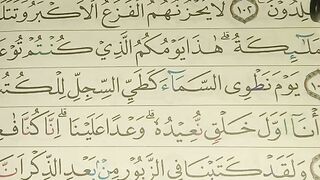 لِدُونَ ١٠٢ لَا يَحْزُنُهُمُ ٱلْفَزَعُ ٱلْأَكْبَرُ وَتَتَلَ
مَلَٰٓئِكَةُ ۖ هَٰذَا يَوْمُكُمُ ٱلَّذِي كُنتُمْ تُو
يَوْمَ نَطْوِي ٱلسَّمَآءَ كَطَيِّ ٱلسِّجِلِّ لِلْكُتُ
أْنَآ أَوَّلَ خَلْقٍ نُّعِيدُهُۥ ۚ وَعْدًا عَلَيْنَآ ۚ إِنَّا كُنَّا فَٰعِ
وَلَقَدْ كَتَبْنَا فِي ٱلزَّبُورِ مِنۢ بَعْدِ ٱلذِّكْرِ أَنَّ